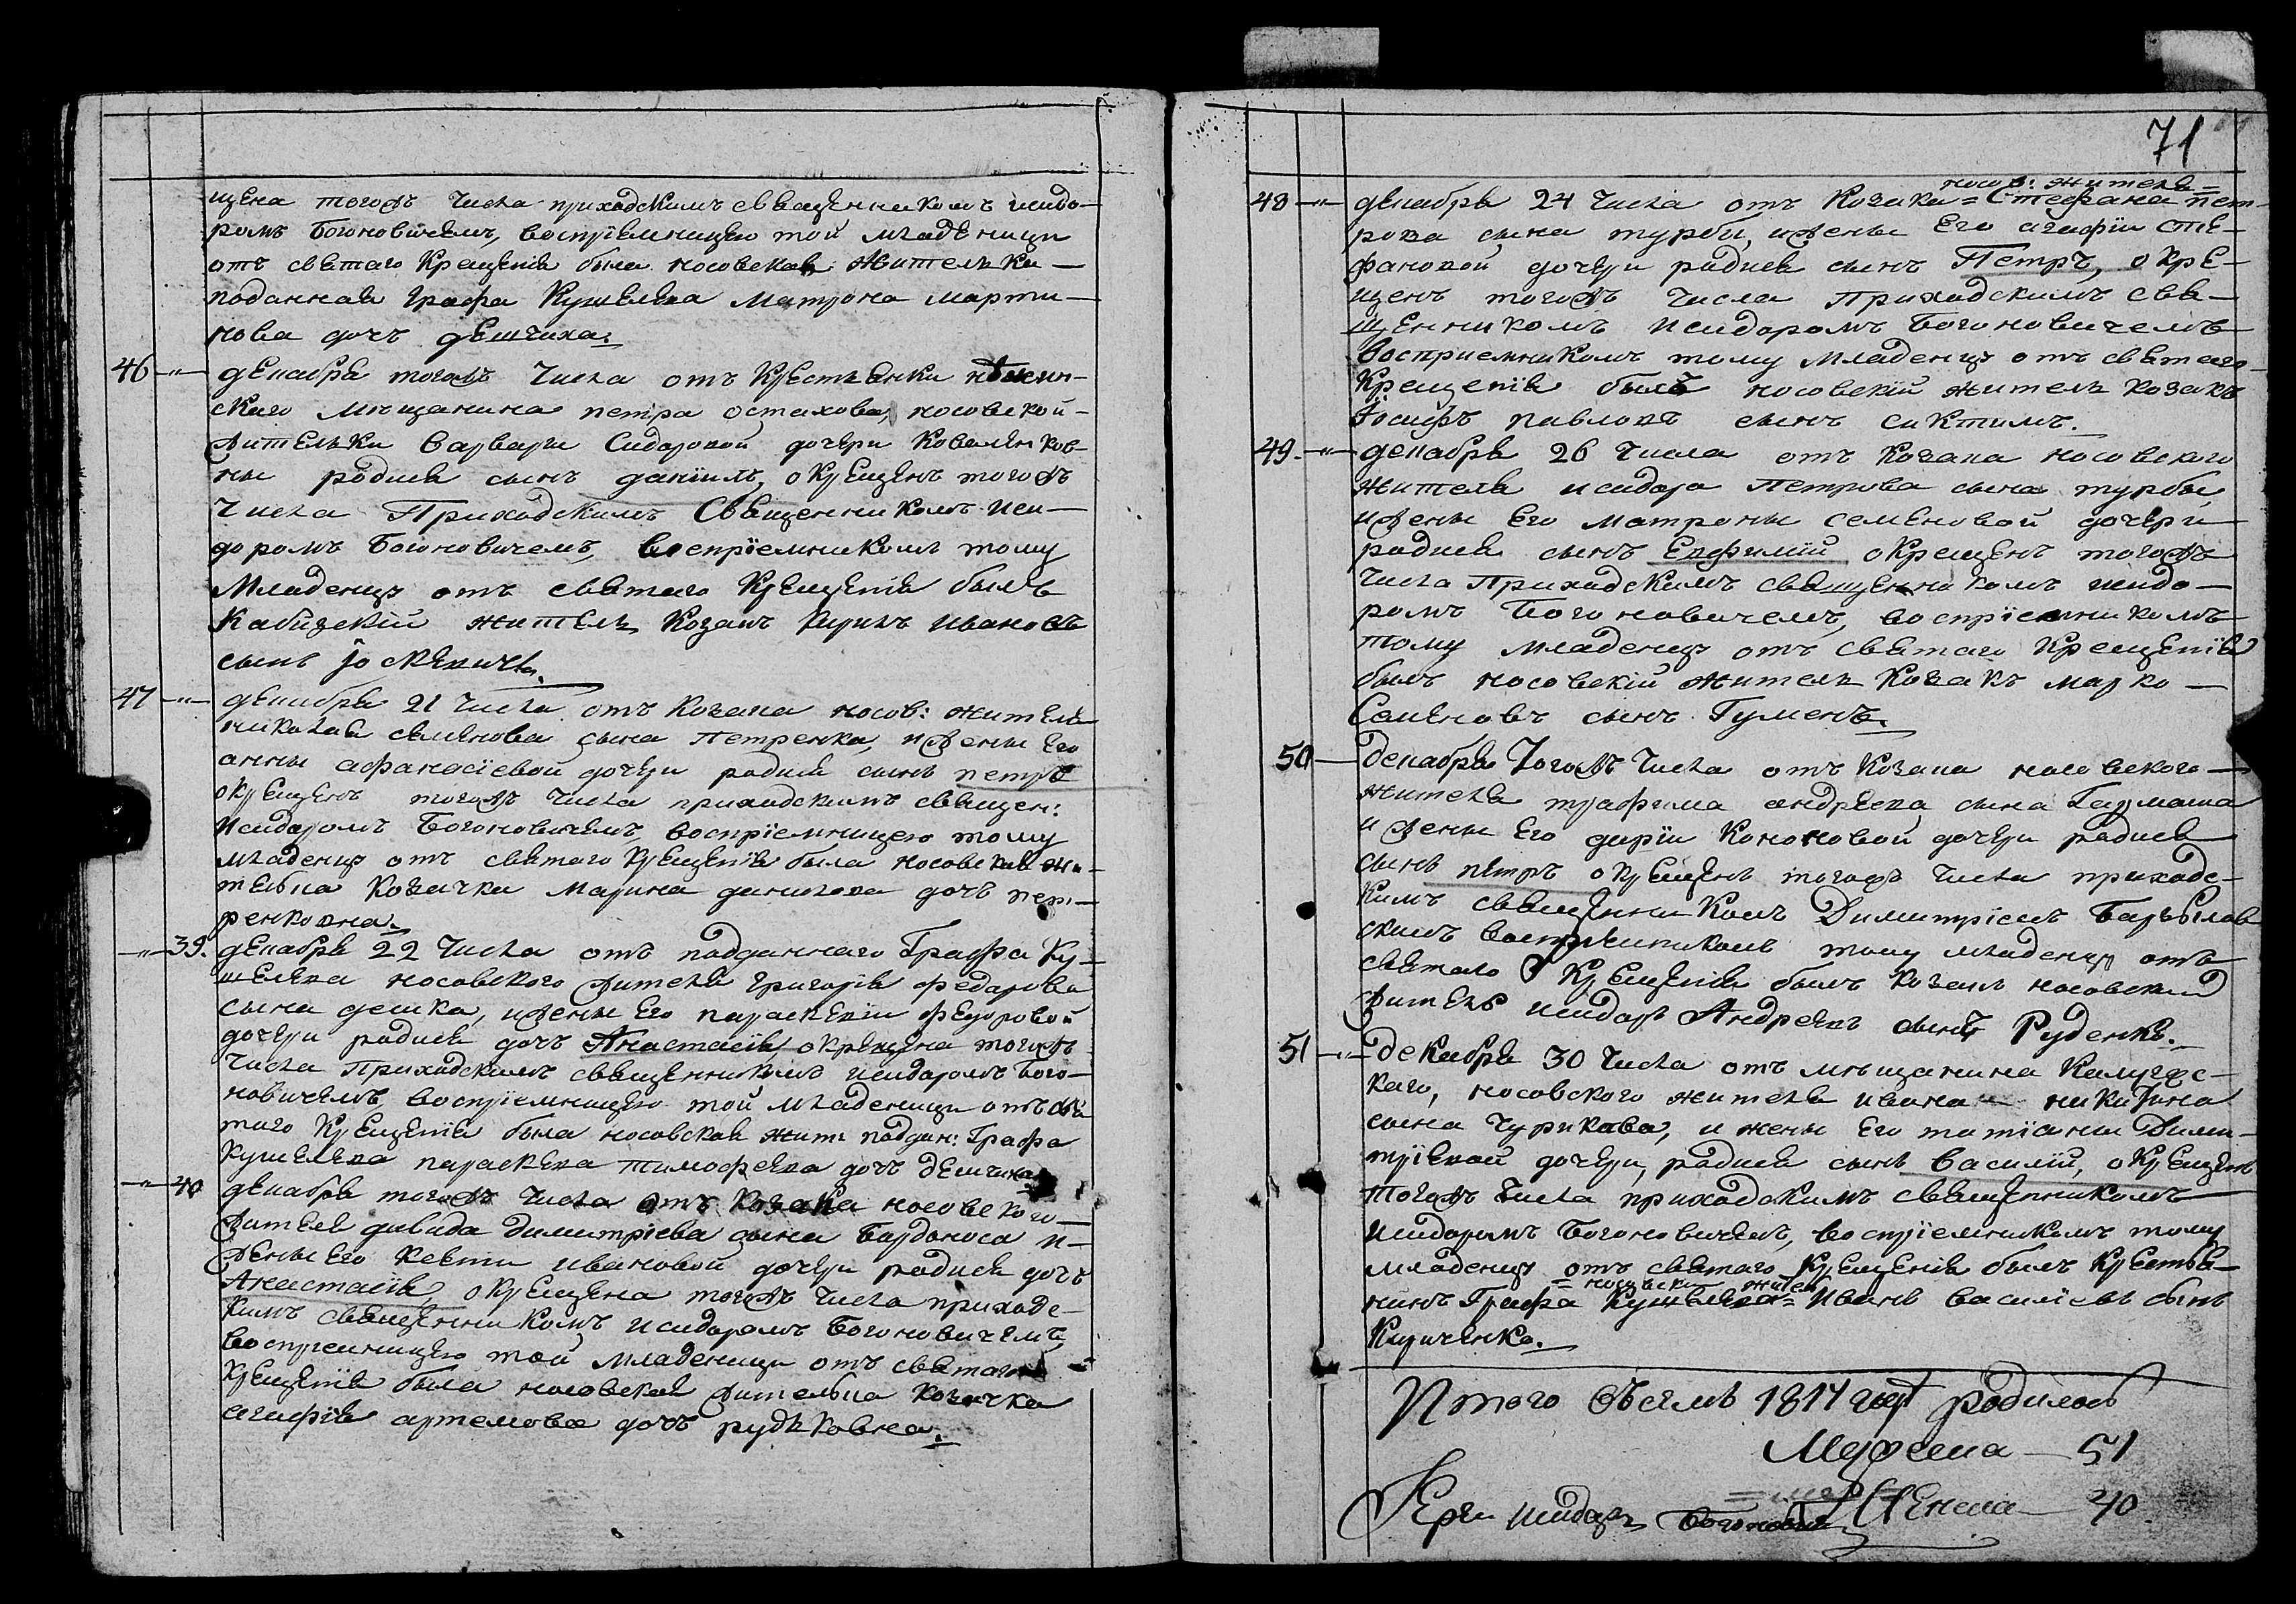 щена тогожъ числа приходскимъ священникомъ исидо-
ромъ Богоновичемъ, воспріемницею той младеници
отъ святаго крещенія была носовская жителька
поданная графа Кушелева Матрона марти-
нова дочъ дешчиха.
46 —"— декабря тогожъ числа отъ крестьянки нѣжин-
скаго мѣщанина петра остахова, носовской
жительки варвари Сидоровой дочери Коваленков-
ны родися сынъ даніилъ, окрещенъ тогожъ
числа Приходскимъ Священникомъ Иси-
доромъ Богоновичемъ, воспріемникомъ тому
Младенцу отъ святаго Крещенія былъ
Кобизскій житель Козакъ Кирилъ ивановъ
сынъ
47 —"— декабря 21 числа отъ козака носов: жителя
николая семенова сына Петренка, и жены его
анны афанасіевой дочери родися сынъ петръ
окрещенъ тогожъ числа приходскимъ священ:
Исидоромъ Богоновичемъ, воспріемницею тому
младенцу отъ святаго крещенія была носовская жи-
телька козачка Марина данилова дочъ пет-
ренковна.
—"— 39. декабря 22 числа отъ подданнаго Графа Ку-
шелева носовского жителя григорія федорова
сына дешка, и жены его параскевіи федоровой
дочери родися дочъ Анастасія, окрещена тогожъ
числа Приходскимъ священникомъ исидоромъ Бого-
новичемъ воспріемницею той младеници отъ свя
таго Крещенія была носовская жит: поддан: Графа
Кушелева параскева тимофеева дочъ дешчиха
—"— 40 декабря тогожъ числа отъ козака носовского
жителя давида димитріева сына Бардоноса и
жены его ивановой дочери родися дочъ
Анастасія, окрещена тогожъ числа приходс-
кимъ священникомъ исидоромъ Богоновичемъ,
воспреемницею той младеници отъ святаго
крещенія была носовская жителька козачка
агафія артемова дочъ рудьковна.
71
носов: жителя
48 —"— декабря 24 числа отъ Козака = Стефана пет-
рова сына турби, и жены Его агафіи сте-
фановой дочери родися сынъ Петръ, окре-
щенъ тогожъ числа Приходскимъ свя-
щенникомъ Исидоромъ Богоновичемъ
восприемникомъ тому младенцу отъ святаго
Крещенія былъ носовскій житель козакъ
Іосифъ павловъ сынъ
49. —"— декабря 26 числа отъ козака носовскаго
жителя исидора Петрова сына турбы,
и жены Его Матроны Семеновой дочери
родися сынъ Евфимій окрещенъ тогожъ
числа Приходскимъ священникомъ исидо-
ромъ Богоновичемъ, воспріемникомъ
тому младенцу отъ святаго Крещенія
былъ носовскій житель козакъ марко
Семеновъ сынъ Гуменъ.
50 — декабря тогожъ числа отъ козака носовского
жителя трофима андреева сына Гармаша
и жены Его даріи Кононовой дочери родися
сынъ петръ окрещенъ тогожъ числа приходс-
кимъ священникомъ Димитріемъ
скимъ воспріемникомъ тому младенцу отъ
святаго Крещенія былъ козакъ носовский
житель исидоръ Андреевъ сынъ Руденко.
51 —"— декабря 30 числа отъ мѣщанина Калужс-
каго, носовского жителя ивана никитина
сына Чурикова, и жены Его татіаны Дими-
тріевой дочери, родися сынъ василій, окрещенъ
тогожъ числа приходскимъ священникомъ
Исидоромъ Богоновичемъ, воспріемникомъ тому
младенцу отъ святаго Крещенія былъ крестья-
= носовски жител
нинъ Графа Кушелева = Иванъ василіевъ сынъ
Кириченко.
Итого въ семъ 1817 году родилось
Мужеска — 51
Женска — 40
Іерей Исидоръ Богоновичъ